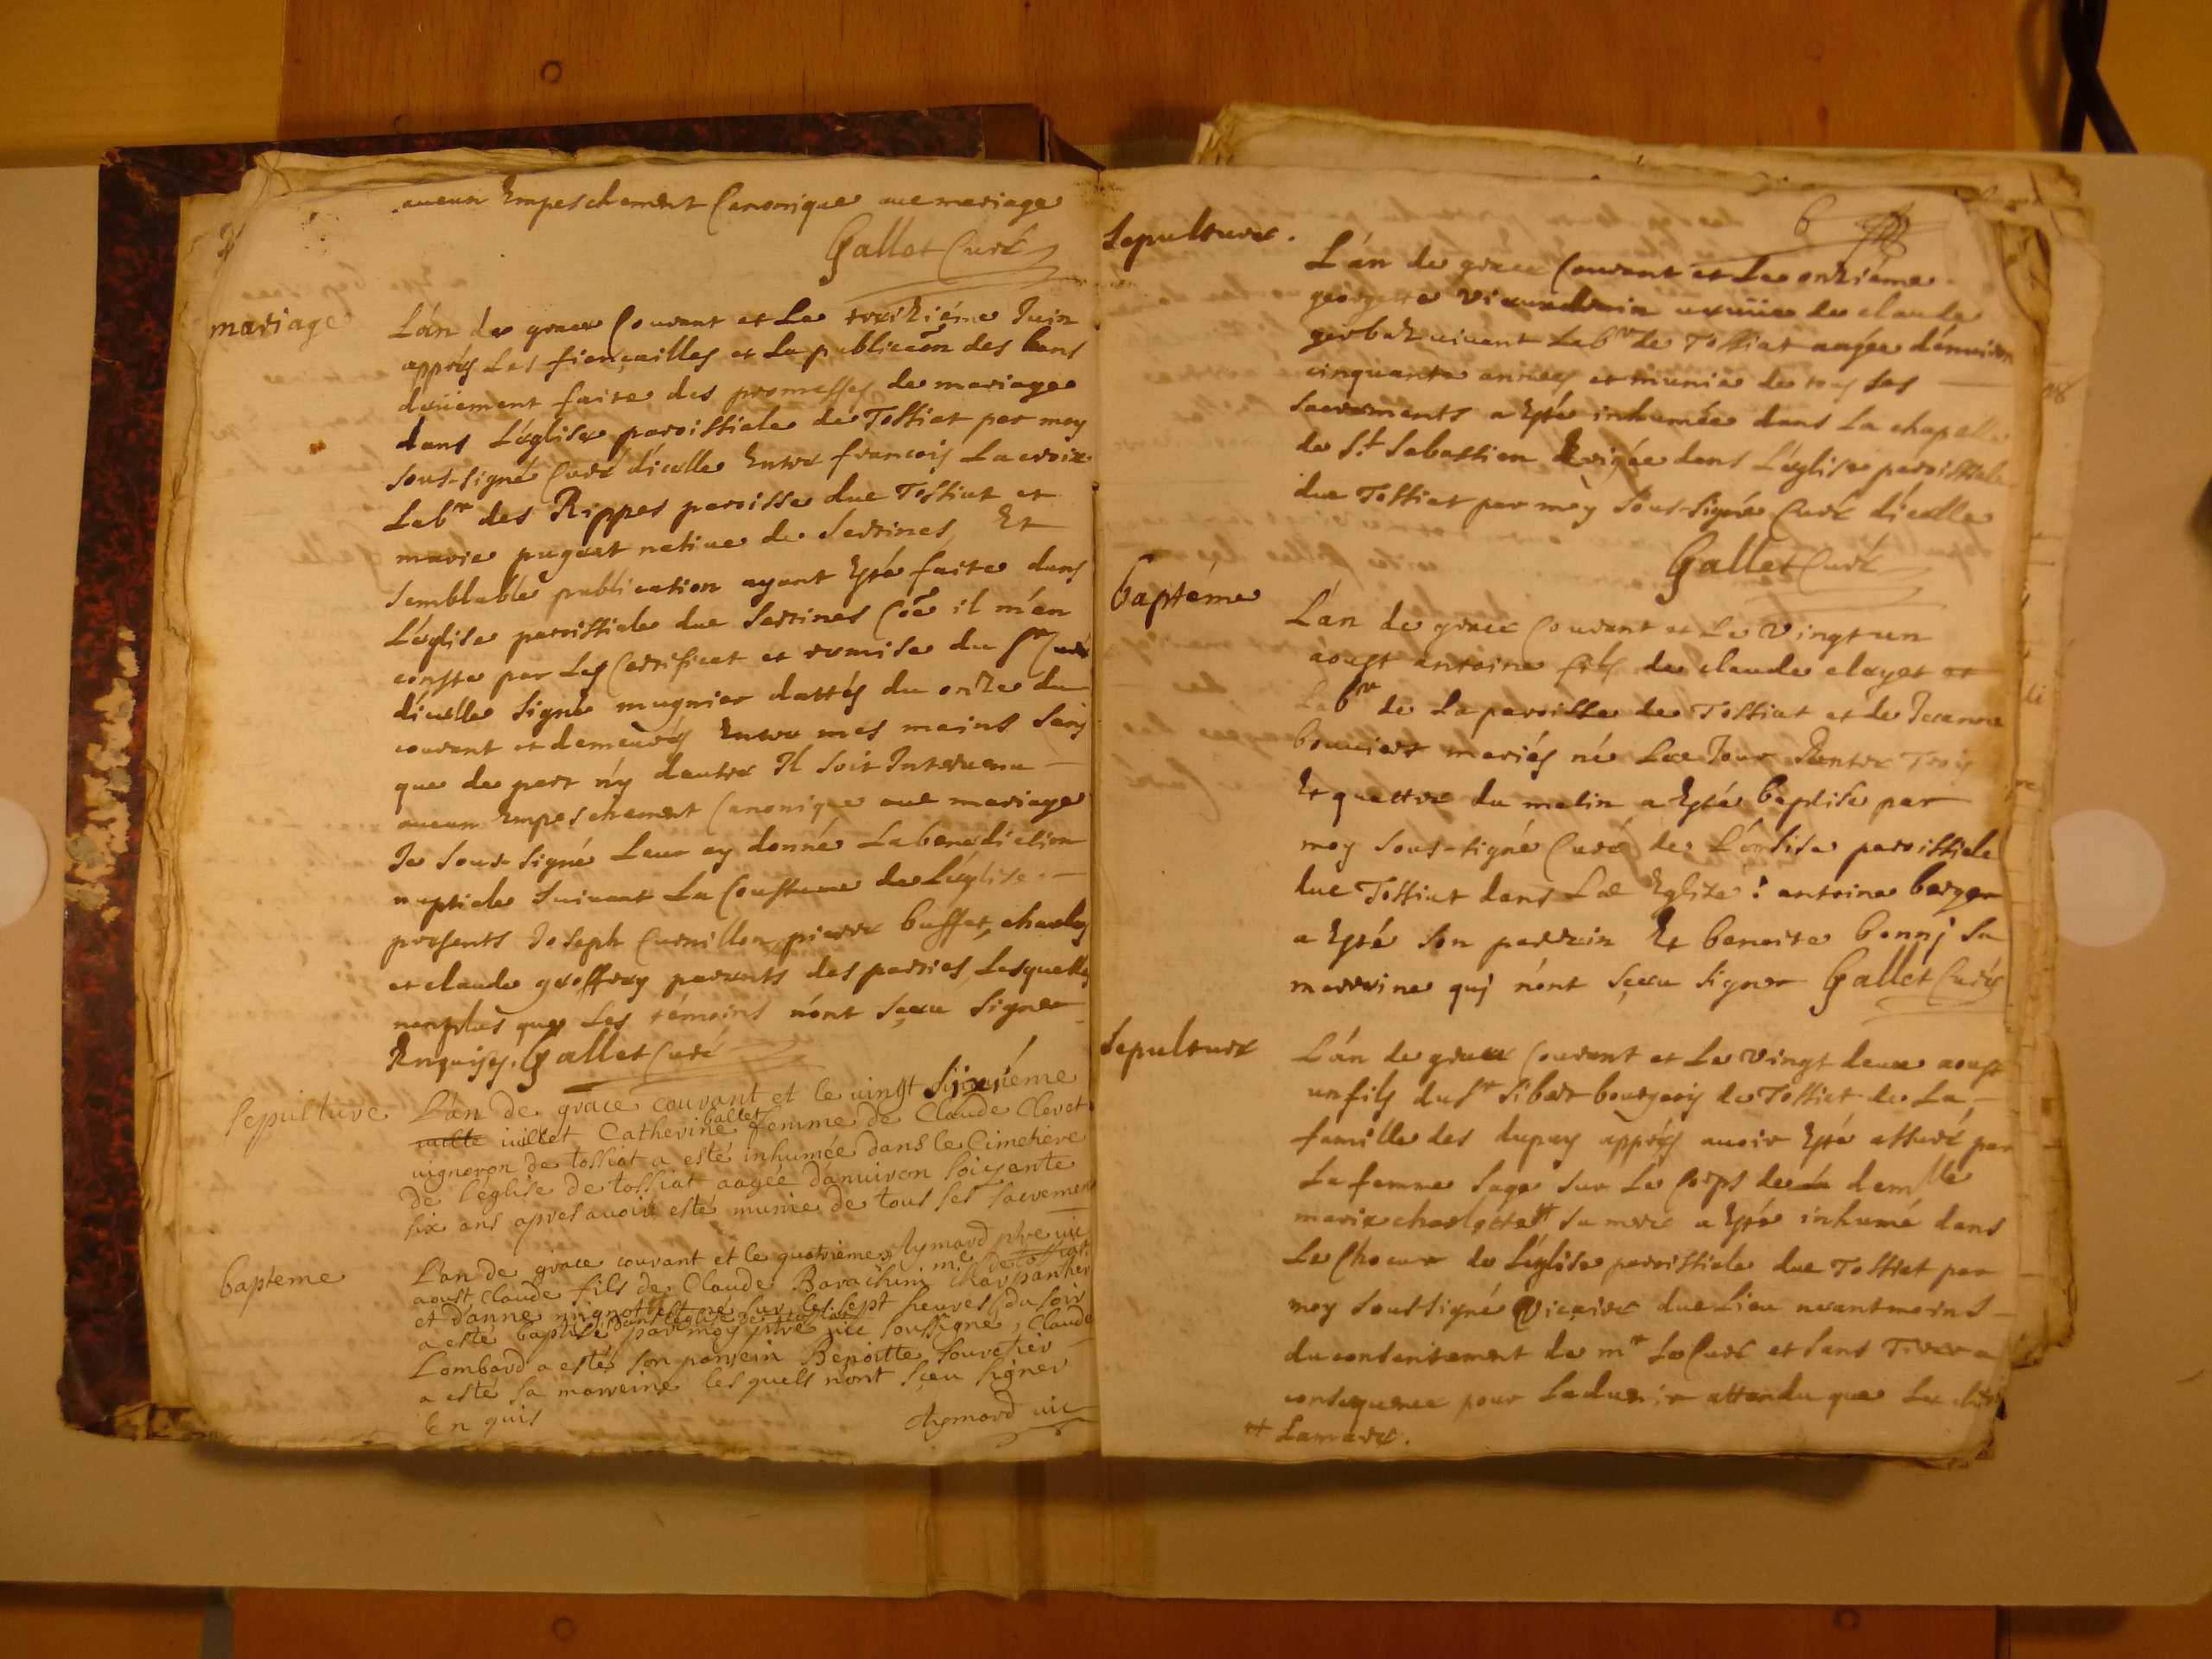 aucun Empeschement Canonique aue mariage
Gallet Curé
mariage
L'án de grace Courant et Le treiziéme Juin
apprés Les fiençailles et La publicaõn des bans
deuëment faite des promesses de mariage
dans L'églize paroissiale de Tossiat par moy
sous-signé Curé d'icelle Entre françois Lacroix
Lab.r des Rippes paroisse due Tossiat et
marie puguet natiue de Serrines, Et
semblable publication ayant Esté faite dans
L'église paroissiale due Serrines Cõe il m'en
conste par Les Certificat et remise du Sr Curé
d'icelle signé mugnier dattés du onze du
courant et demeurés Entre mes mains sans
que de part n'y dautre Il soit Interuenu
aucun Empeschement Canonique aue mariage
Je sous-signé Leur ay donné La benediction
nuptiale suiuant La Coustume de L'église.
presents Joseph Curnillon, pierre buffet, charles
et claude geoffray parents des parties, Lesquelles
nonplus que Les témoins n'ont sçeu signer
Enquises. Gallet Curé
Sepulture
L'an de grace courant et le uingt sixiéme
juillet Catherine ballet femme de Claude Clevet
uigneron de tossiat a esté inhumée dans le Cimetiere
de l'église de tossiat aagée d'anuiron soixante
six ans apres auoir esté munie de tous ses sacremens
Aymard ptre uic
bapteme
L'an de grace courant et le quatrieme
m.e de tossiat
aoust Claude fils de Claude Barachini Charpantier
et d'anne mignot est né sur les sept heures du soir
a esté baptisé dans l'église de tossiat par moy ptre uic soussigné, Claude
Lombard a esté son parrein Benoitte fouretier
a esté sa marreine lesquels n'ont sçeu signer
Enquis
Aymard uic
6
Sepulture.
L'án de grace Courant et Le onziéme
georgette uefuue de claude
gerbaz uiuant Lab.r de Tossiat aagée d'énuiron
cinquante années et munie de tous ses
sacrements a Esté inhumée dans La chapelle
de S.t Sebastien Erigée dans L'églize paroissiale
due Tossiat par moy sous-signé Curé d'icelle
Gallet Curé
baptéme
L'án de grace Courant et Le vingt un
aoust antoine fils de claude clayet et
Lab.r de La paroisse de Tossiat et de Jeanne
bouuier mariés né Lae Jour Entre Trois
Et quattre du matin a Esté baptisé par
moy sous-signé Curé de L'églisе paroissiale
due Tossiat dans Lae Eglize: antoine berger
a Esté son parrain Et benoite bonnj sa
marraine quj n'ónt sçeu signer Gallet Curé
Sepulture
L'án de grace Courant et Le vingt deux aoust
un fils du Sr Sibert bourgeois de Tossiat de La
famille des dupuy apprés auoir Esté asseuré par
La femme sage sur Le Corps de dem.lle
marie charlotte # sa mere a Esté inhumé dans
Le Choeur de L'églize paroissiale due Tossiat par
moy soussigné Vicaire due Lieu neantmoins
du consentement de mr Le Curé et sans Tirer a
consequence pour Laduenir attendu que Le
# Lamare.